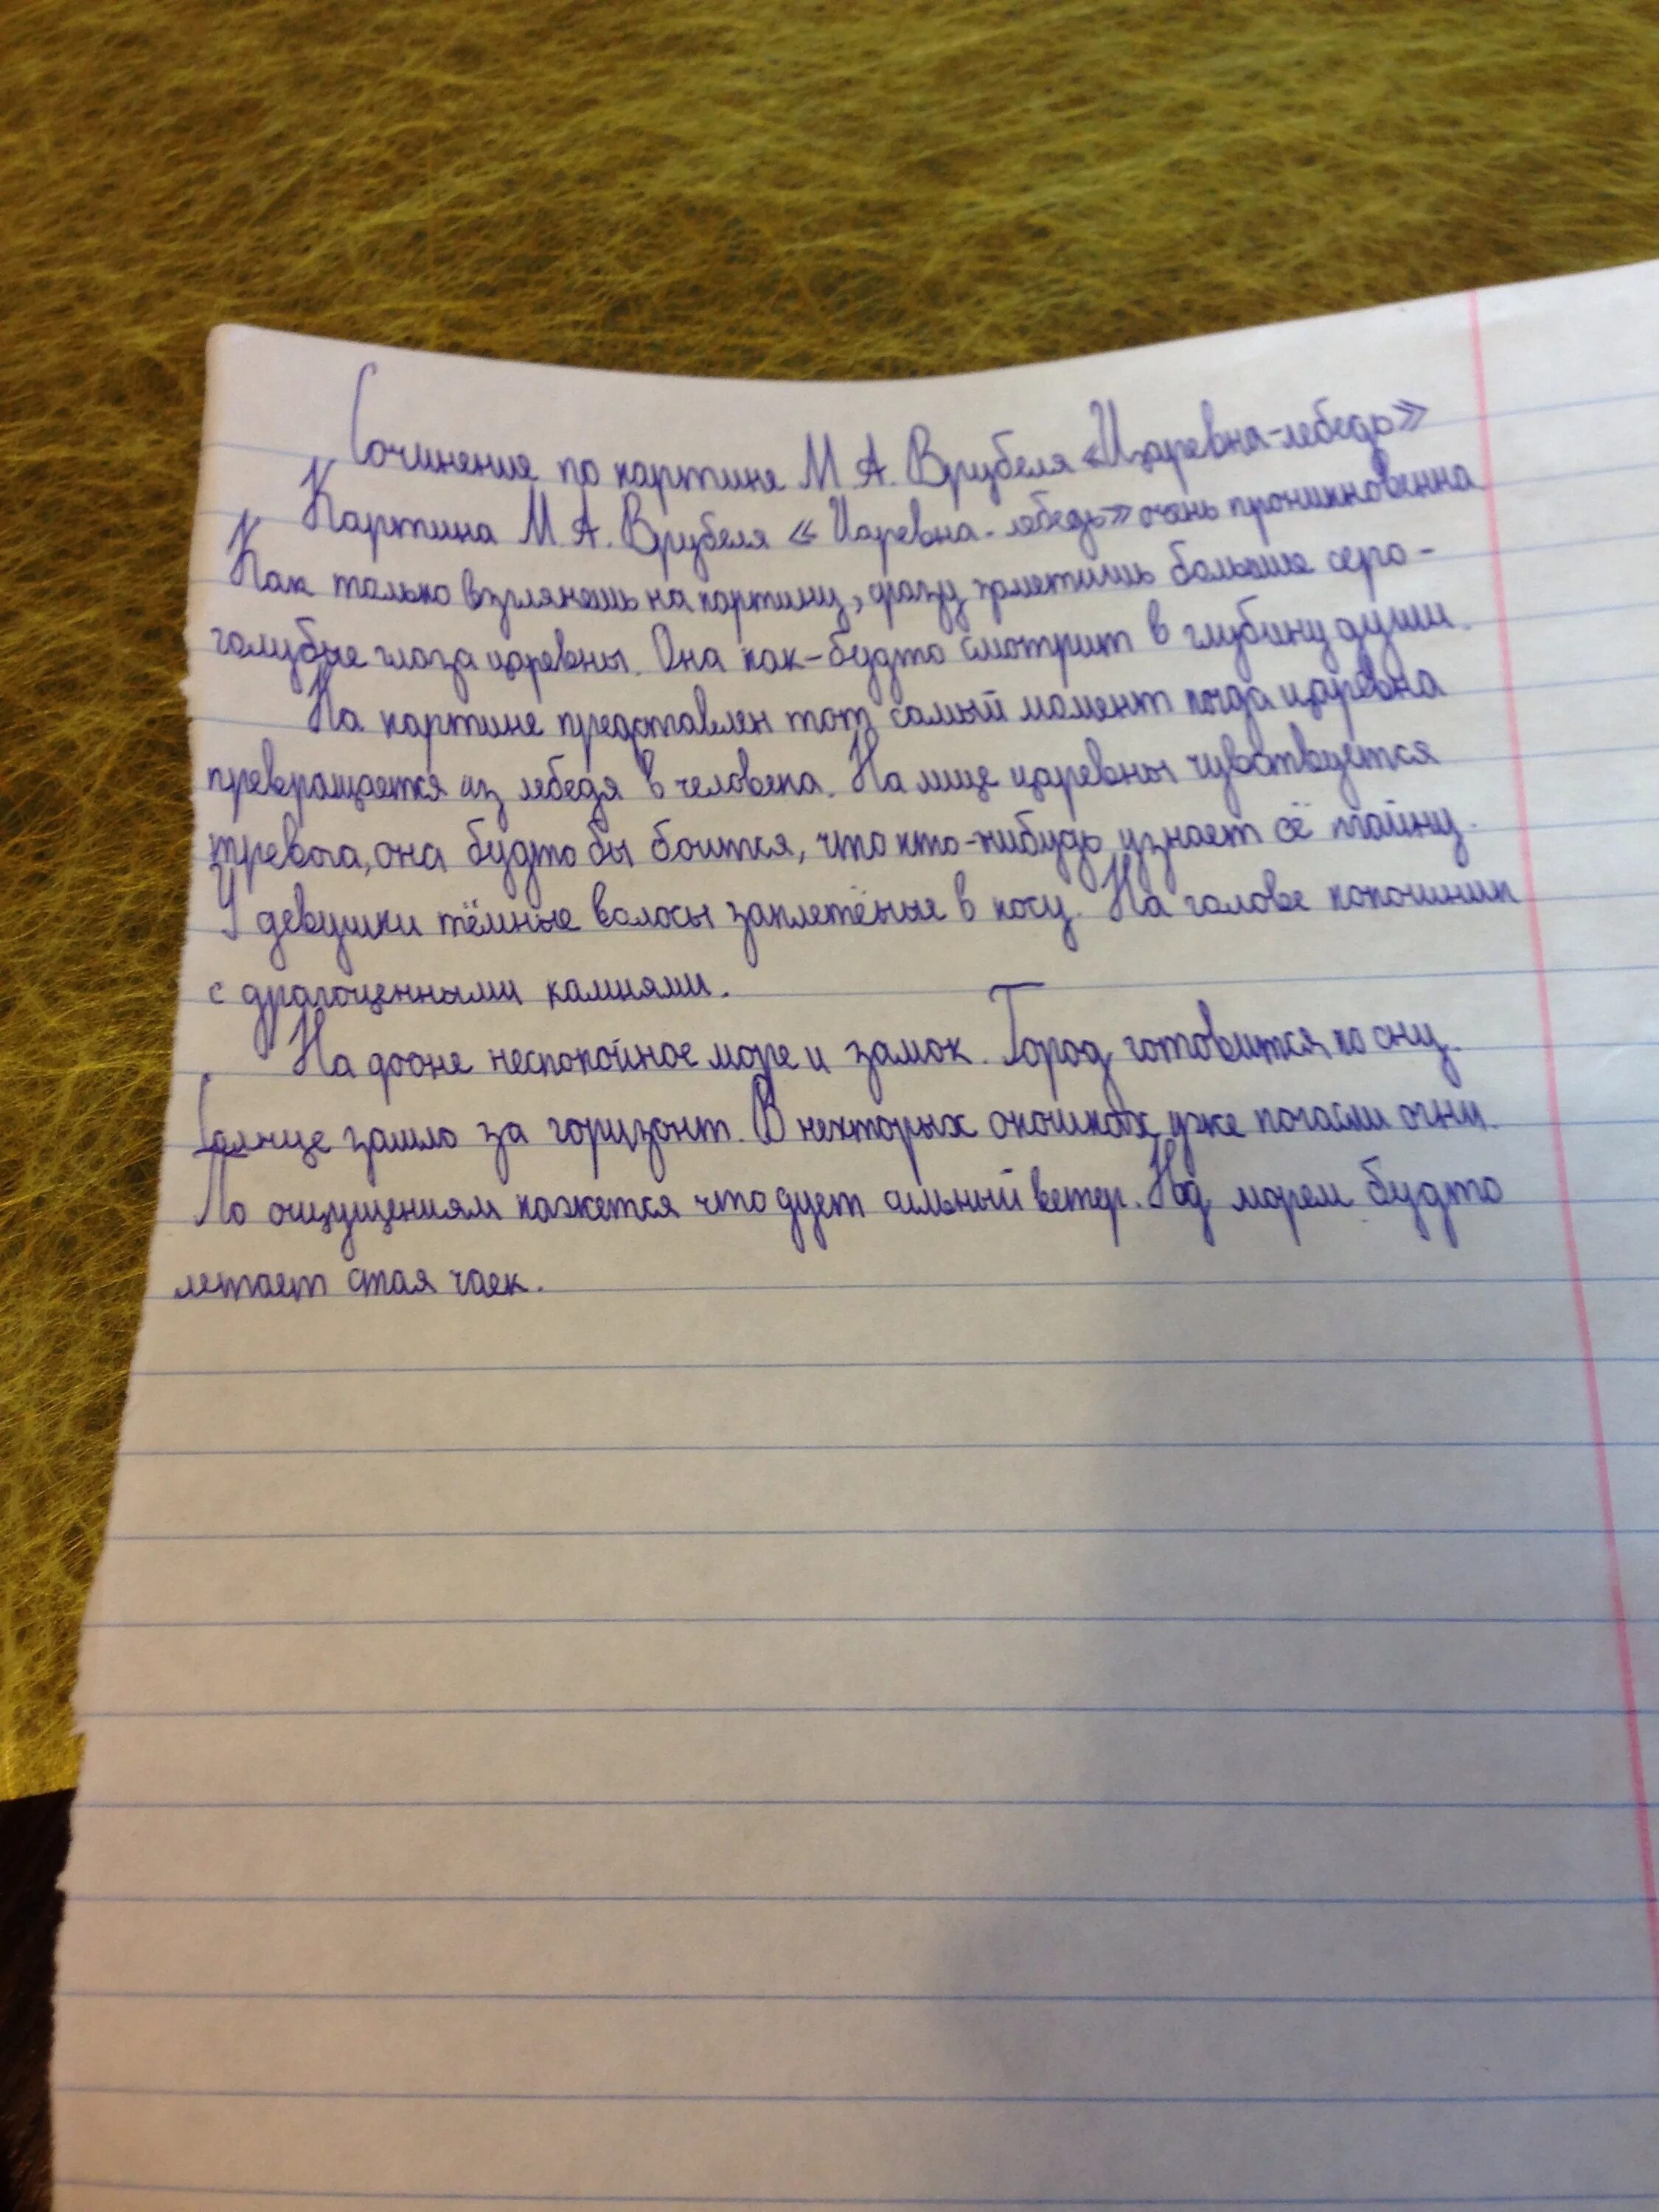 Сочинение по картине М.А. Врубеля «Царевна-лебедь»
Картина М.А. Врубеля «Царевна-лебедь» очень проникновенна
Как только взглянешь на картину, сразу заметишь большие серо-
голубые глаза царевны. Она как-будто смотрит в глубину души.
На картине представлен тот самый момент когда царевна
превращается из лебедя в человека. На лице царевны чувствуется
тревога, она будто бы боится, что кто-нибудь узнает её тайну.
У девушки тёмные волосы заплетёные в косу. На голове кокошник
с драгоценными камнями.
На фоне неспокойное море и замок. Город готовится ко сну.
Солнце зашло за горизонт. В некторых окошках уже погасли огни.
По ощущениям кажется что дует сильный ветер. Над морем будто
летает стая чаек.